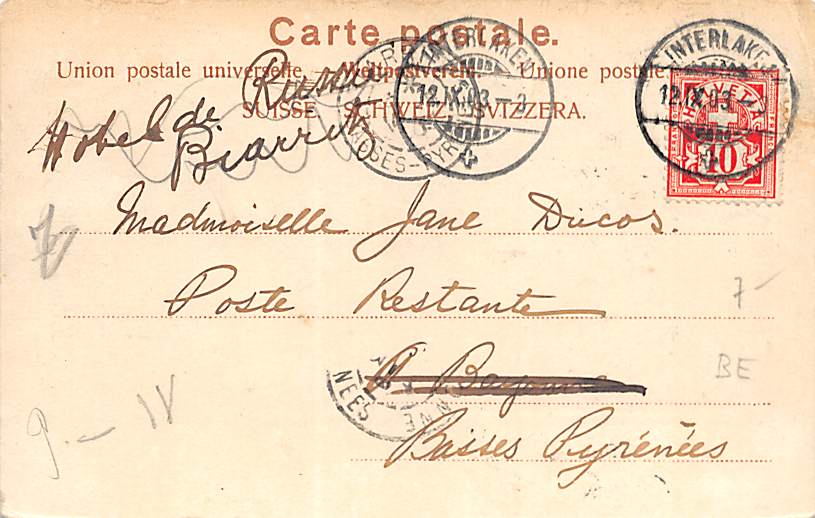 Carte postale.
Union postale universelle. — Weltpostverein. — Unione postale
SUISSE SCHWEIZ SVIZZERA.
INTERLAKEN
12.IX.03.–3
INTERLAKEN
12.IX.03.
HELVETIA
10
BASSES-PYRÉ
Hotel de Russie
Biarritz
Madmoiselle Jane Ducos.
Poste Restante
A Bayonne
NNE
NÉES
Basses Pyrénées
7-
BE
9 - IV